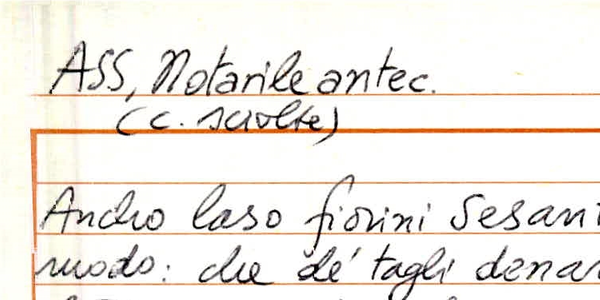 ASS, Notarile antec.
(c. sciolte)
Andro laso fiorini Sesan
modo: che de' tagli dena